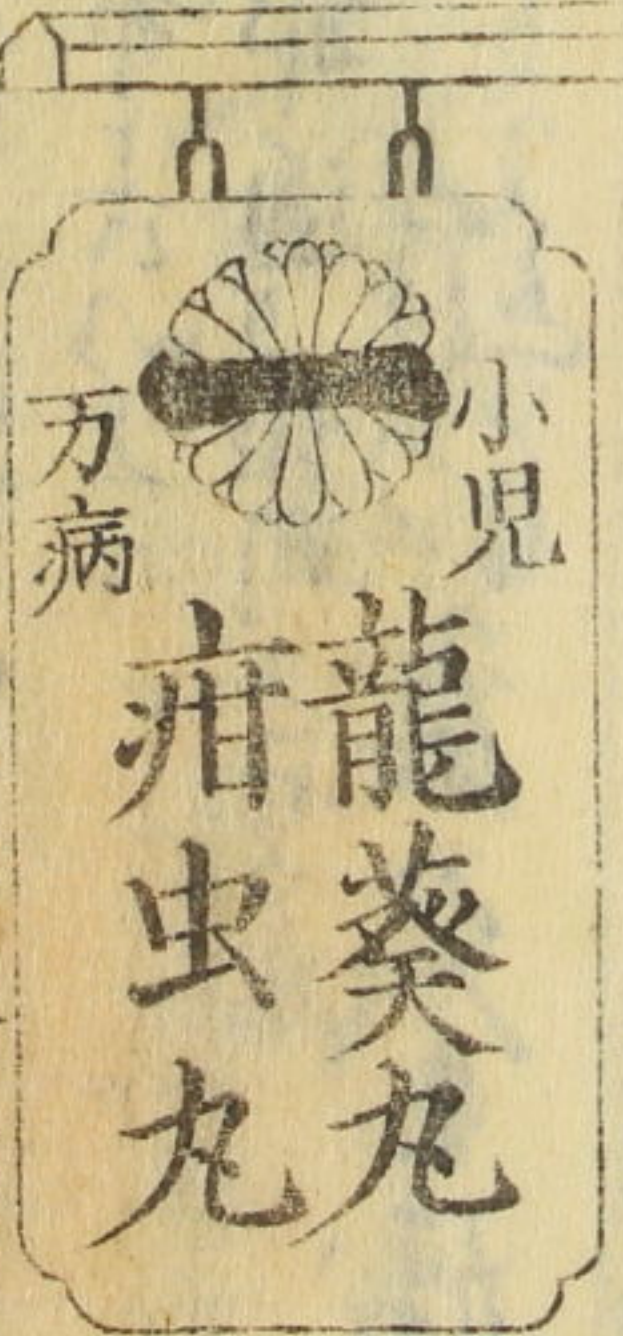 小児
万病
龍葵丸
疳虫丸